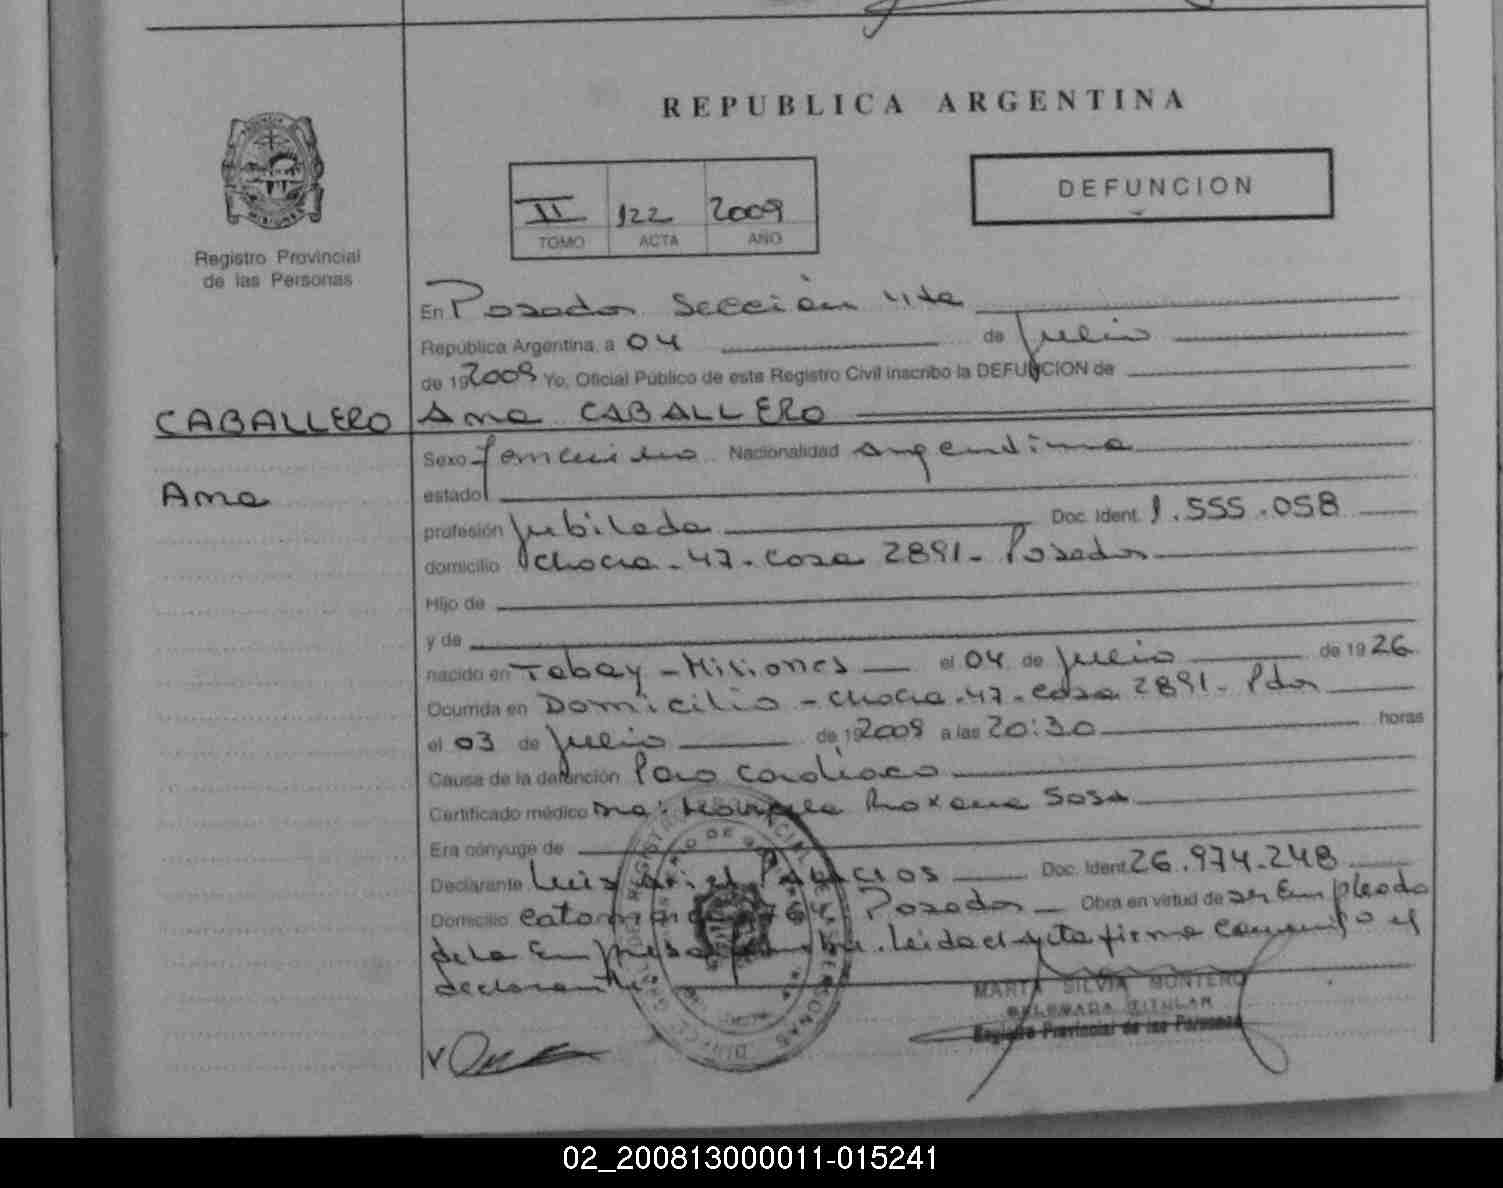 REPUBLICA ARGENTINA
DEFUNCION
II 122 2009
TOMO ACTA AÑO
Registro Provincial
de las Personas
En Posadas Sección 4ta
República Argentina, a 04 de Julio
de 192009 Yo, Oficial Público de este Registro Civil inscribo la DEFUNCION de
CABALLERO Ana CABALLERO
Sexo femenino Nacionalidad argentina
Ana
estado
profesión Jubilada Doc. Ident. 1.555.058
domicilio Chacra - 47 - Casa 2891 - Posadas
Hijo de
y de
nacido en Tabay - Misiones el 04 de Julio de 1926
Ocurrida en Domicilio - Chacra - 47 - Casa 2891 - Pdas
el 03 de Julio de 192009 a las 20:30 horas
Causa de la defunción Paro Cardiaco
Certificado médico Roxana Sosa
Era cónyuge de
Declarante Luis Ariel Palacios Doc. Ident. 26.974.248
Domicilio Catamarca Posadas Obra en virtud de ser Empleado
de la Empresa leida el acta firma conmigo el
declarante
MARTA SILVIA MONTERO
DELEGADA TITULAR
Registro Provincial de las Personas
02_200813000011-015241